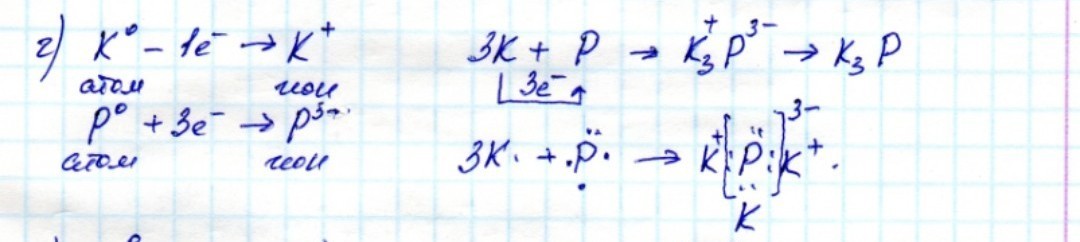 г) K⁰ – 1e⁻ → K⁺
атом ион
P⁰ + 3e⁻ → P³⁻
атом ион
3K + P → K₃⁺P³⁻ → K₃P
3e⁻
3K· + ·P̈· → K⁺[:P̈:]³⁻K⁺.
K